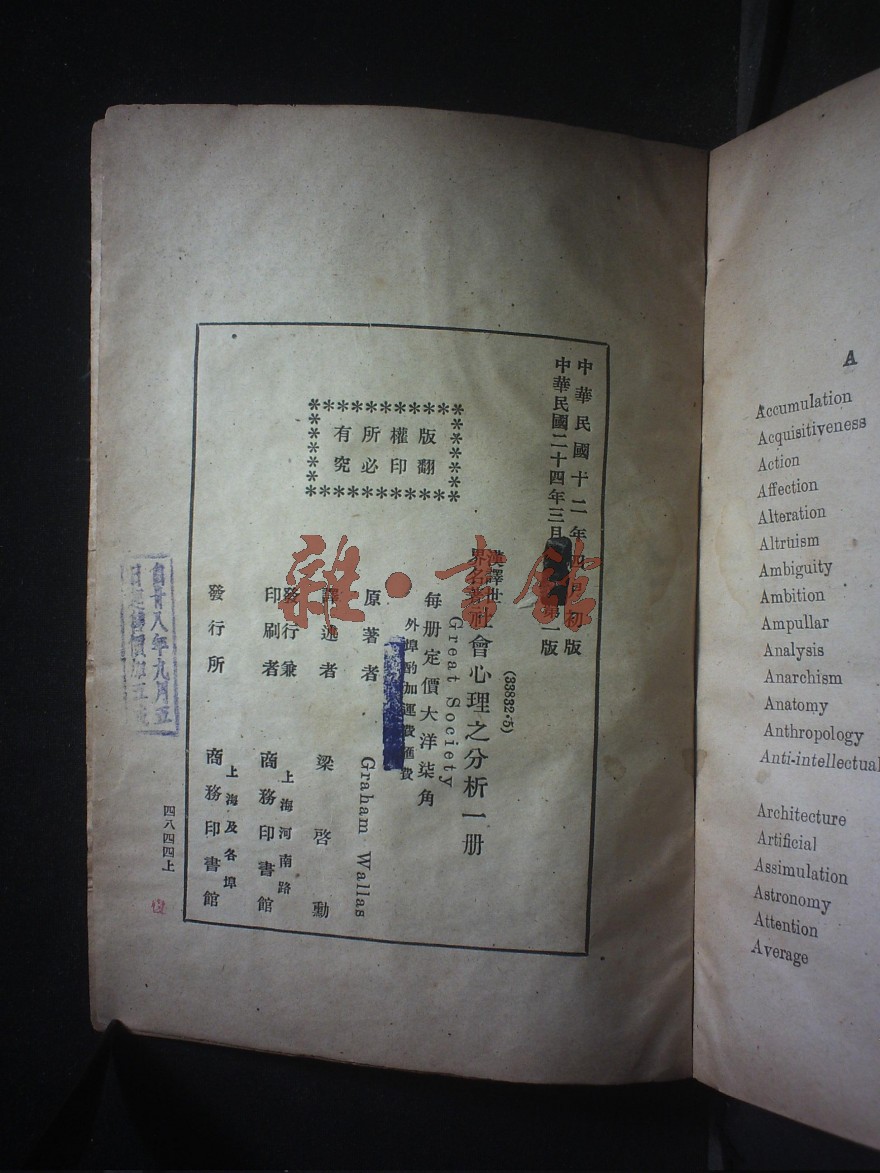 中華民國十二年四月初版
中華民國二十四年三月
第一版
(33832·5)
漢譯世
界名著
社會心理之分析一册
Great Society
每册定價大洋柒角
外埠酌加運費匯費
版權所有
翻印必究
原著者 Graham Wallas
譯述者 梁啓勳
發行兼
印刷者
上海河南路
商務印書館
發行所
上海及各埠
商務印書館
四八四四上
自廿八年九月五
日起售價加五成
雜·書館
A
Accumulation
Acquisitiveness
Action
Affection
Alteration
Altruism
Ambiguity
Ambition
Ampullar
Analysis
Anarchism
Anatomy
Anthropology
Anti-intellectual
Architecture
Artificial
Assimulation
Astronomy
Attention
Average